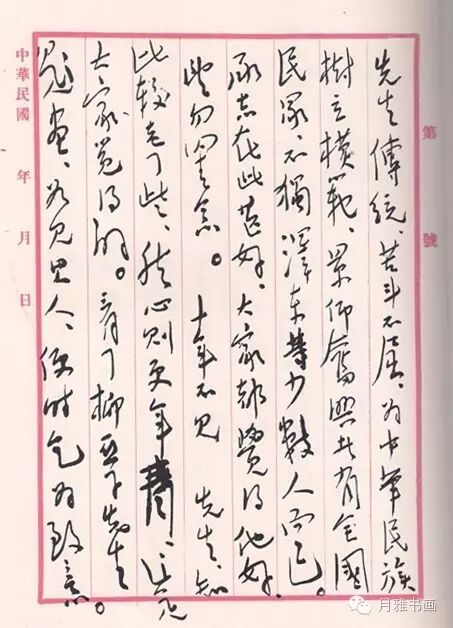 第 號
先生傳統、苦斗不屈、为中华民族
樹立模範、景仰奮興者有全國
民眾、不獨澤東等少數人而已。
承志在此甚好、大家都覺得他好、
望勿罣念。 十年不見 先生、知
比較老了些、然心則更年青、這是
大家覓得的。看了柳亞子先生
題畫、如見其人、便時乞为致意。
中華民國 年 月 日
月雅书画